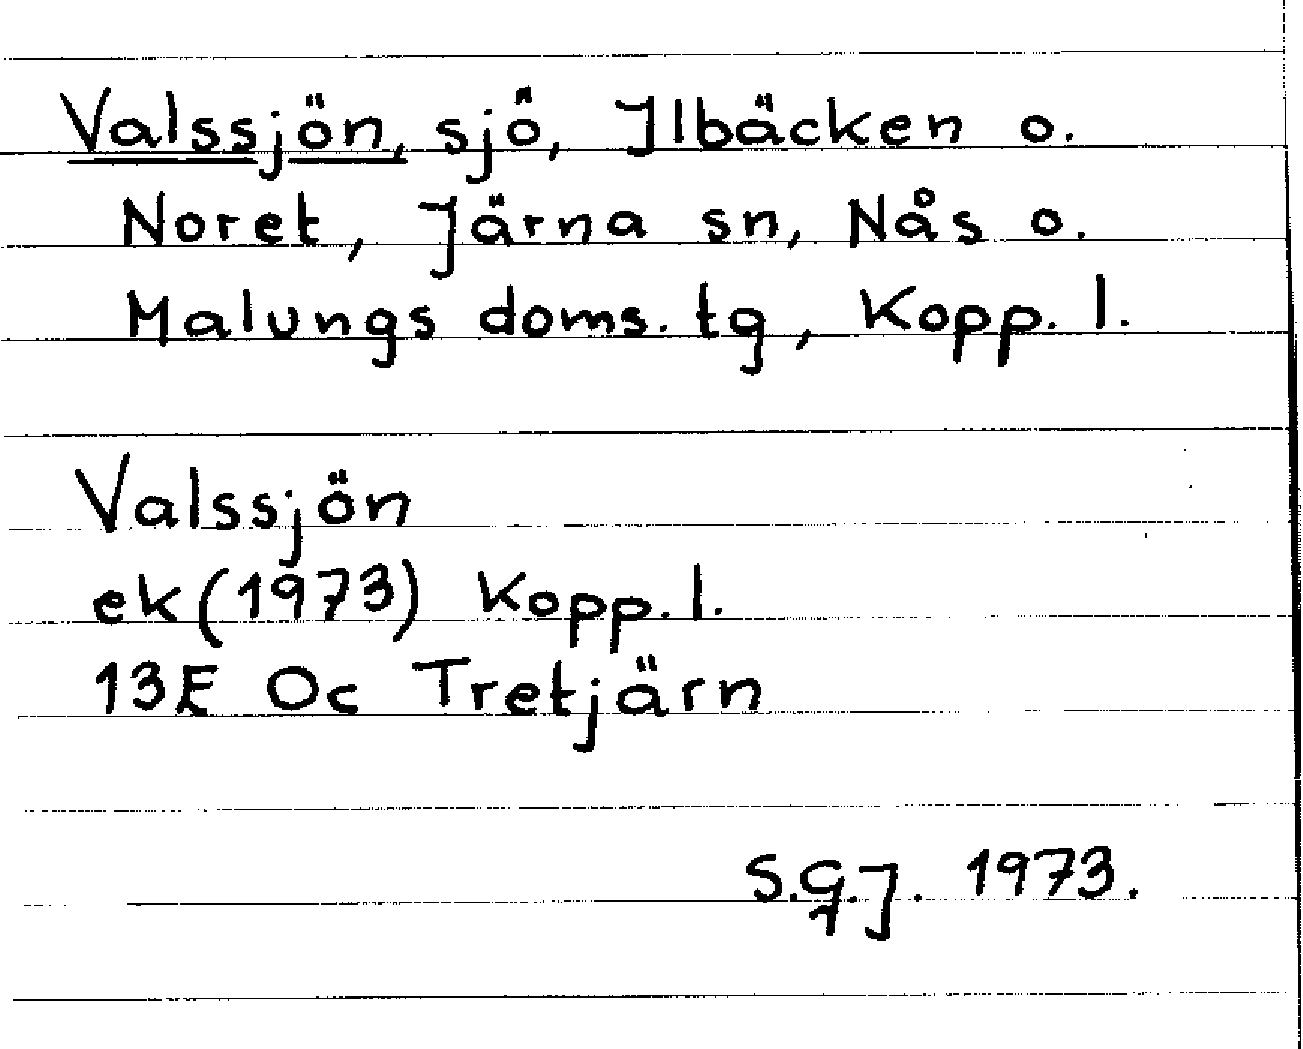 Valssjön, sjö, Ilbäcken o.
Noret, Järna sn, Nås o.
Malungs doms. tg, Kopp. l.
Valssjön
ek (1973) Kopp. l.
13E 0c Tretjärn
S.G.J. 1973.